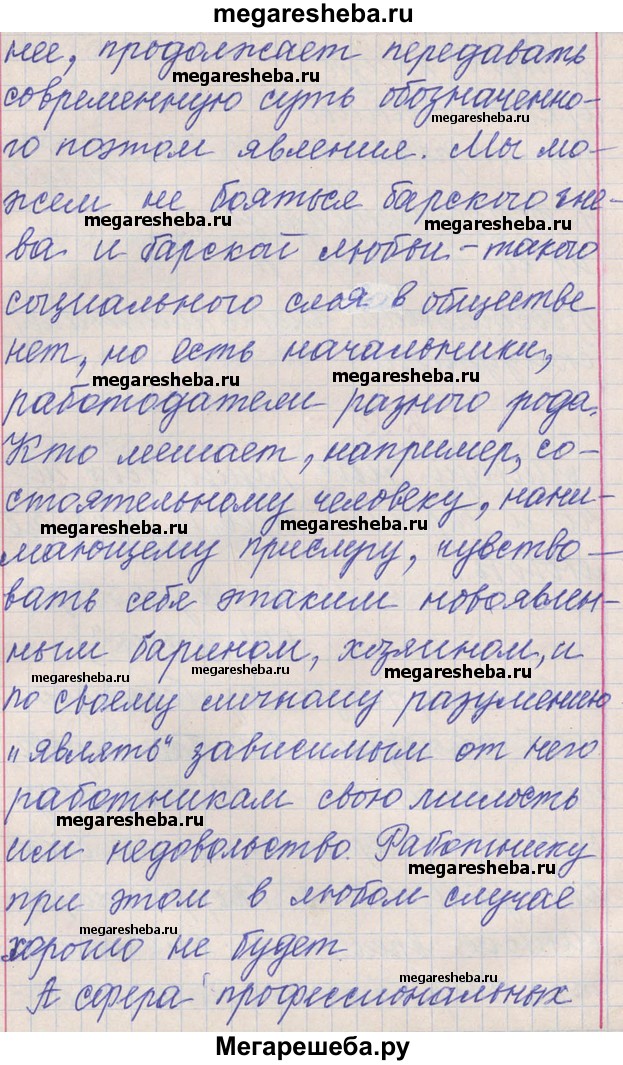 megaresheba.ru
нее, продолжает передавать
megaresheba.ru
современную суть обозначенно-
megaresheba.ru
го поэтом явления. Мы мо-
жем не бояться барского гне-
megaresheba.ru
megaresheba.ru
ва и барской любви - такого
социального слоя в обществе
нет, но есть начальники,
megaresheba.ru
megaresheba.ru
работодатели разного рода.
Кто мешает, например, со-
стоятельному человеку, нани-
megaresheba.ru
megaresheba.ru
мающему прислугу, чувство-
вать себя этаким новоявлен-
ным барином, хозяином, и
megaresheba.ru
megaresheba.ru
megaresheba.ru
по своему личному разумению
"являть" зависимым от него
работникам свою милость
megaresheba.ru
или недовольство. Работнику
megaresheba.ru
при этом в любом случае
megaresheba.ru
хорошо не будет
А сфера профессиональных
megaresheba.ru
megaresheba.ru
Мегарешеба.ру